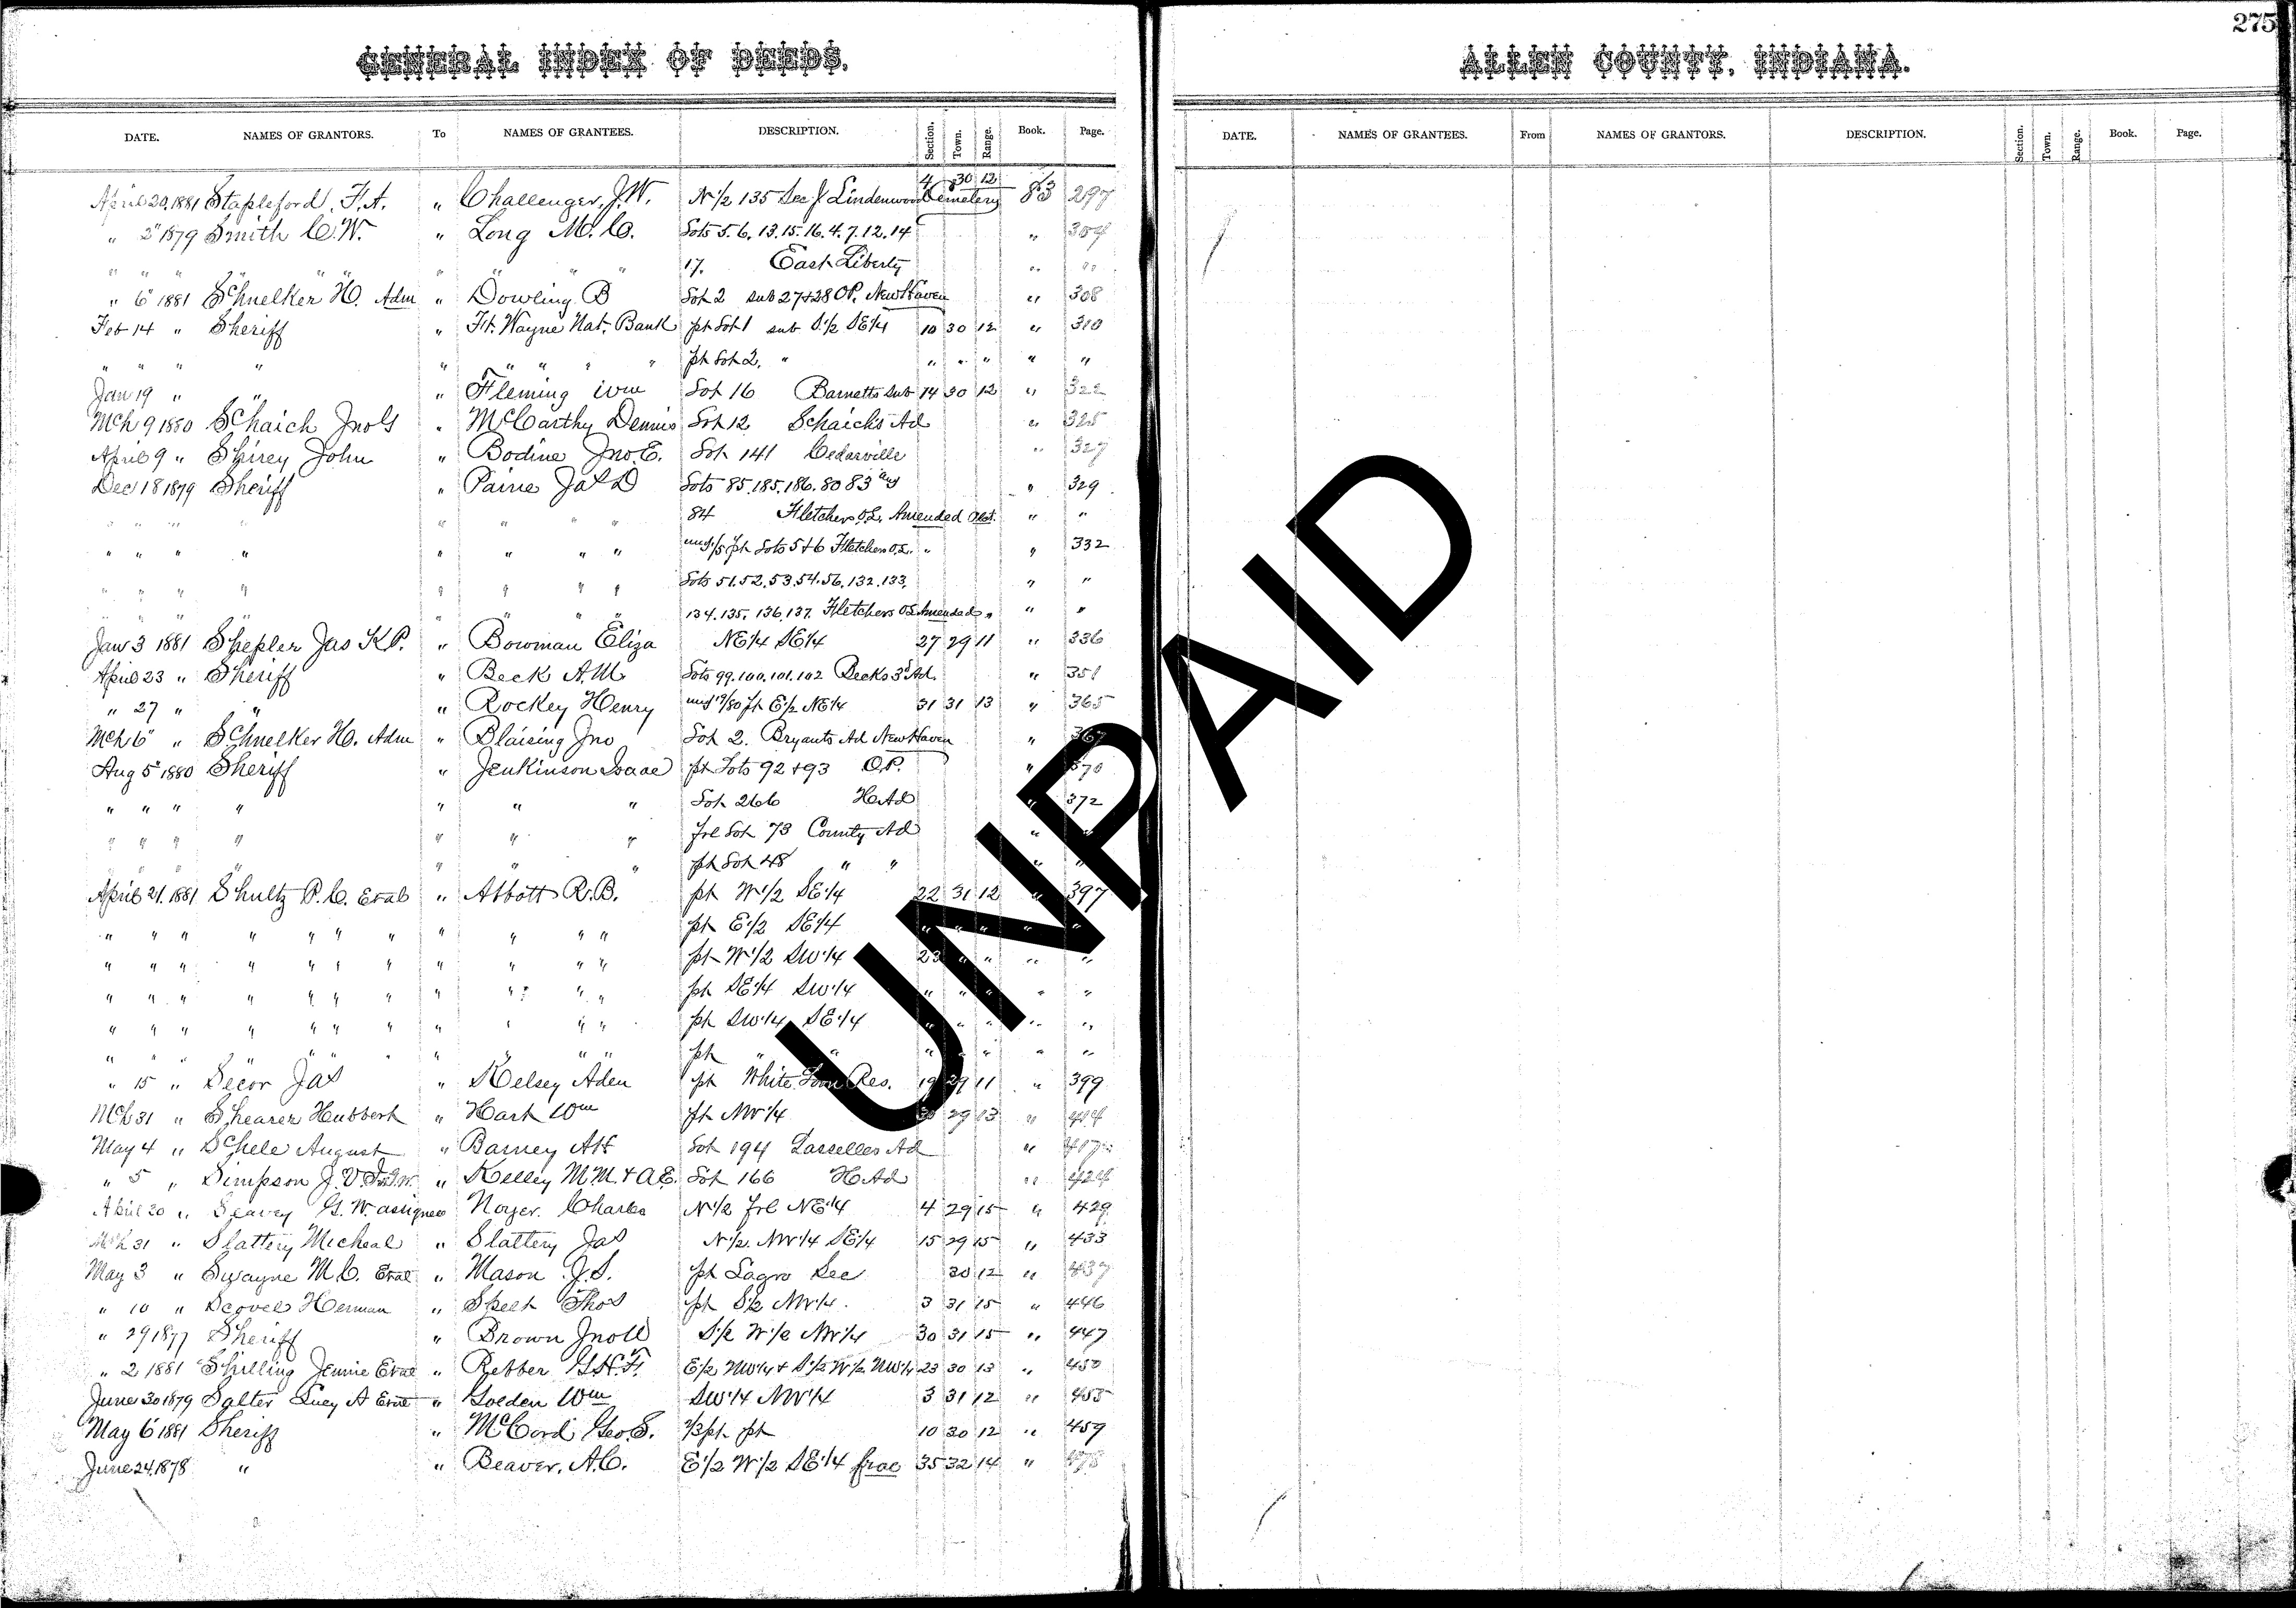 275
GENERAL INDEX OF DEEDS.
ALLEN COUNTY, INDIANA.
DATE. NAMES OF GRANTORS. To NAMES OF GRANTEES. DESCRIPTION. Section. Town. Range. Book. Page.
DATE. NAMES OF GRANTEES. From NAMES OF GRANTORS. DESCRIPTION. Section. Town. Range. Book. Page.
4 30 12
April 20, 1881 Stapleford, F.A. " Challenger, J.W. N 1/2 135 Sec J Lindenwood Cemetery 83 297
" 2" 1879 Smith C.W. " Long M.C. Lots 5.6.13.15.16.4.7.12.14 "
" " " " " " " " 17. East Liberty " "
" 6" 1881 Schnelker H. Adm " Dowling B Lot 2 sub 27+28 O.P. New Haven " 308
Feb 14 " Sheriff " Ft. Wayne Nat. Bank pt Lot 1 sub S 1/2 SE 1/4 10 30 12 " 310
" " " " " " " " " pt Lot 2. " " " " " "
Jan 19 " " " Fleming Wm Lot 16 Barnetts Sub 14 30 12 " 322
Mch 9 1880 Schaich Jno G " McCarthy Dennis Lot 12 Schaichs Ad " 325
April 9 " Shirey John " Bodine Jno. E. Lot 141 Cedarville " 327
Dec 18 1879 Sheriff " Paine Jas D Lots 85.185.186.80 83 and " 329
" " " " " " " 84 Fletchers O.L. Amended " "
" " " " " " " " und 1/5 pt Lots 5+6 Fletchers O.L. " " 332
" " " " " " " " Lots 51.52.53.54.56.132.133. " "
" " " " " " 134.135.136.137. Fletchers O.L. Amended " " "
Jan 3 1881 Shepler Jas K.P. " Bowman Eliza NE 1/4 SE 1/4 27 29 11 " 336
April 23 " Sheriff " Beck A.M. Lots 99.100.101.102 Becks 3d Ad. " 351
" 27 " " " Rockey Henry und 19/80 pt E 1/2 NE 1/4 31 31 13 " 365
Mch 6" " Schnelker H. Adm " Blaising Jno Lot 2. Bryants Ad New Haven " 367
Aug 5" 1880 Sheriff " Jenkinson Isaac pt Lots 92+93 O.P. " 370
" " " " " " " Lot 266 H. Ad " 372
" " " " " " " frl Lot 73 County Ad " "
" " " " " " " pt Lot 48 " " " "
April 21. 1881 Shultz P.C. Etal " Abbott R.B. pt W 1/2 SE 1/4 22 31 12 " 397
" " " " " " " " " " " pt E 1/2 SE 1/4 " " " " "
" " " " " " " " " " " pt W 1/2 SW 1/4 23 " " " "
" " " " " " " " " " " pt SE 1/4 SW 1/4 " " " " "
" " " " " " " " " " " pt SW 1/4 SE 1/4 " " " " "
" " " " " " " " " " " pt " " " " " " "
" 15 " Secor Jas " Kelsey Aden pt White Loon Res. 19 29 11 " 399
Mch 31 " Shearer Hubbert " Hart Wm pt NW 1/4 29 13 "
May 4 " Schele August " Barney AH Lot 194 Lasselles Ad "
" 5 " Simpson J.V. " Kelley M.M. + A.E. Lot 166 H. Ad " 424
April 20 " Seavey G.W. assignee " Noyer. Charles N 1/2 frl NE 1/4 4 29 15 " 429
Mch 31 " Slattery Micheal " Slattery Jas N 1/2. NW 1/4 SE 1/4 15 29 15 " 433
May 3 " Swayne M.C. Etal " Mason J.S. pt Lagro Sec 30 12 " 437
" 10 " Scovel Herman " Skelt Thos pt S 1/2 NW 1/4. 3 31 15 " 446
" 29 1877 Sheriff " Brown Jno W S 1/2 W 1/2 NW 1/4 30 31 15 " 447
" 2 1881 Shilling Jennie Etal " Rebber G.H.F. E 1/2 NW 1/4 + S 1/2 W 1/2 NW 1/4 23 30 13 " 450
June 30 1879 Salter Lucy A Etal " Golden Wm SW 1/4 NW 1/4 3 31 12 " 455
May 6 1881 Sheriff " McCord Geo. S. 2/3 pt. pt 10 30 12 " 459
June 24, 1878 " " Beaver, A.C. E 1/2 W 1/2 SE 1/4 frac 35 32 14 "
UNPAID